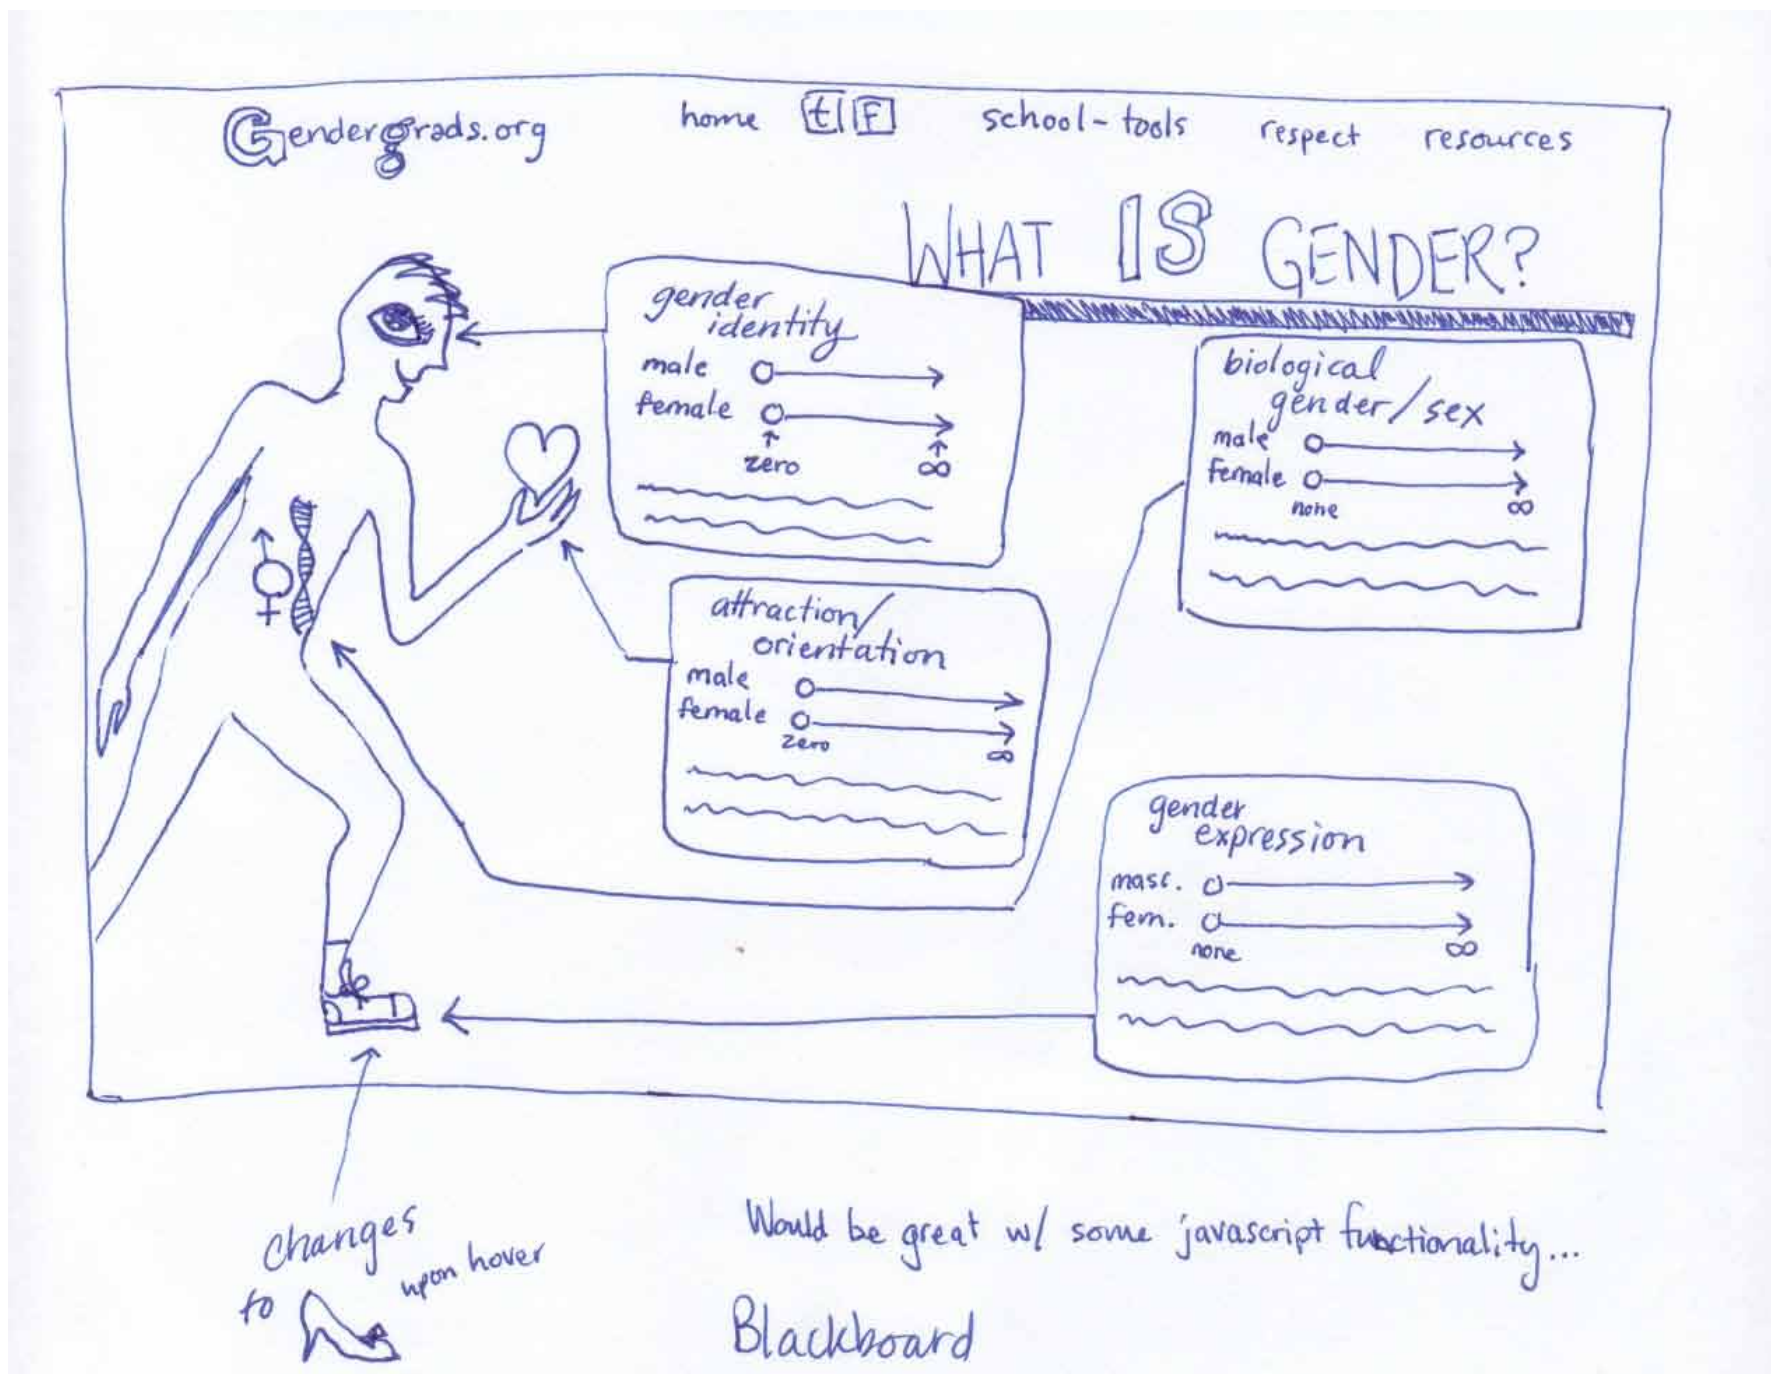 Gendergrads.org
home t F school-tools respect resources
WHAT IS GENDER?
gender
identity
male
female
zero ∞
biological
gender/sex
male
female
none ∞
attraction/
orientation
male
female
zero ∞
gender
expression
masc.
fem.
none ∞
changes
upon hover
to
Would be great w/ some javascript functionality...
Blackboard